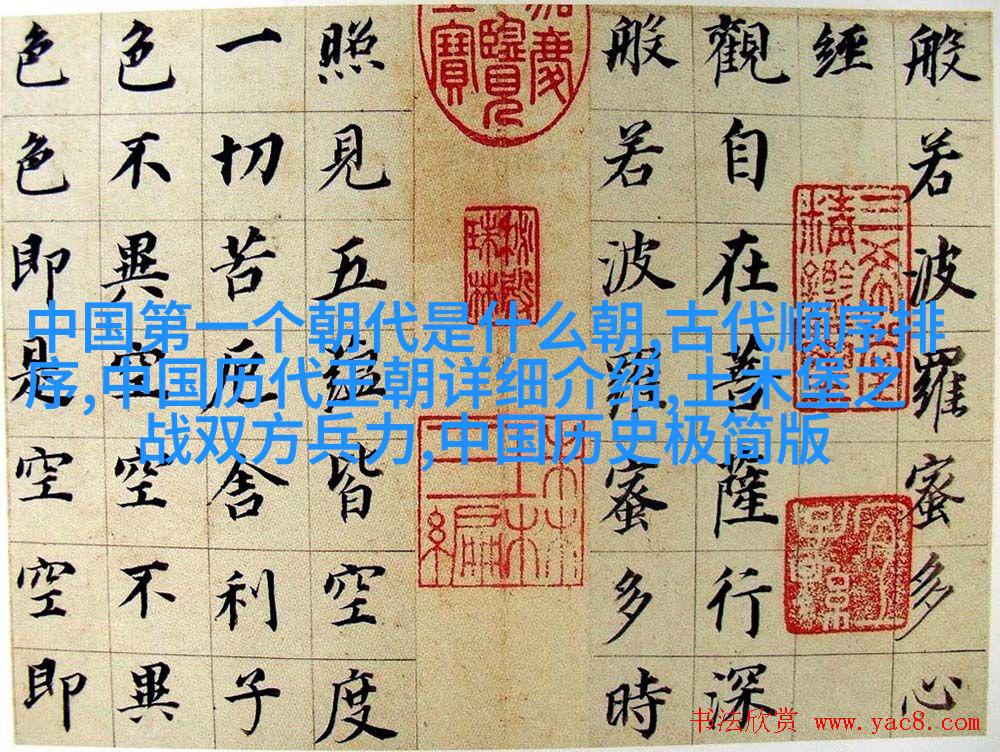 般若波羅蜜多心
經
觀自在菩薩行深
般若波羅蜜多時
照見五蘊皆空度
一切苦厄舍利子
色不異空空不異
色色即是空空即
中国第一个朝代是什么朝,古代顺序排
序,中国历代王朝详细介绍,土木堡之
战双方兵力,中国历史极简版
秘殿
珠林
三希堂
精鑑璽
宜子孫
书法欣赏 www.yac8.com